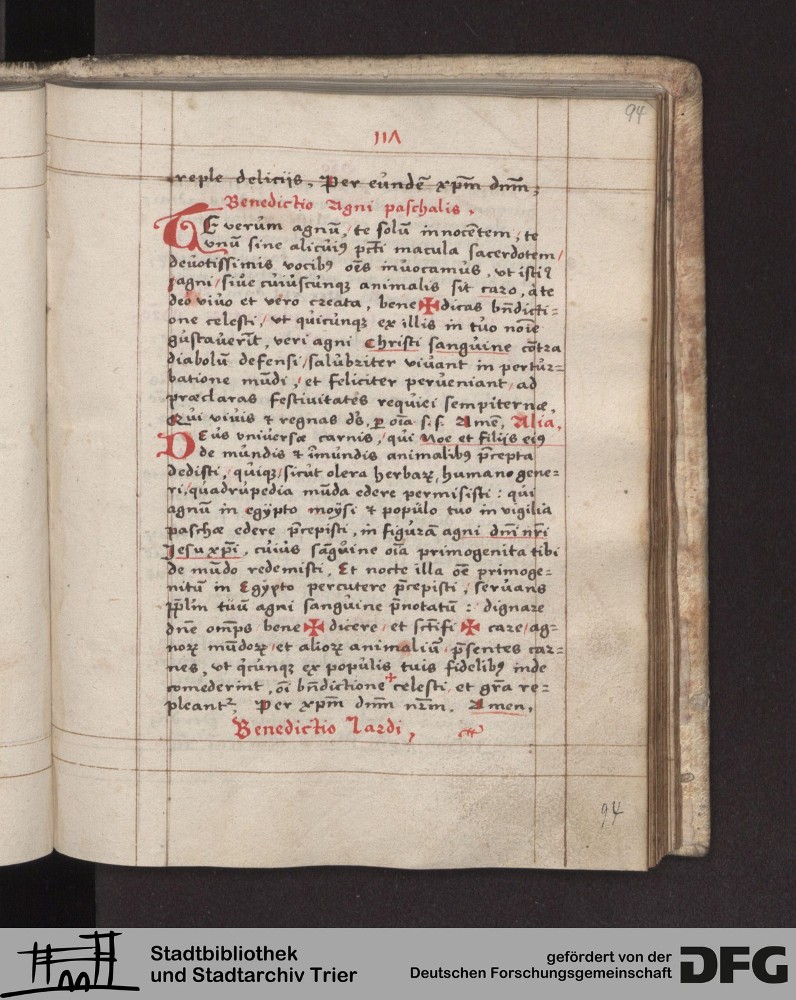 94
117
reple delicijs, Per eundē xp̄m dn̄m,
Benedictio Agni paschalis,
TE verùm agnū, te solū innocētem, te
vnū sine alicùiꝯ pctī macula sacerdotem,
deùotissimis vocibꝯ oēs inùocamùs, vt isti9
agni, siùe cùiùscùnqꝫ animalis sit caro, à te
deo viùo et vero creata, bene✠dicas bn̄dicti=
one celesti, vt qùicùnqꝫ ex illis in tùo noīe
gùstaùerīt, veri agni Christi sangùine cōtra
diabolū defensi, salùbriter viùant in pertùr=
batione mūdi, et feliciter perùeniant, ad
præclaras festiuitates reqùiei sempiternæ,
Qui viùis & regnas ds̄, ꝑ oīa s. s. Amē, Alia,
DEùs vniùersæ carnis, qùi Noe et filijs eiꝯ
de mùndis & īmùndis animalibꝯ p̄cepta
dedisti, qùiqꝫ, sicùt olera herbaꝝ, humano gene=
ri, qùadrùpedia mūda edere permisisti: qùi
agnū in egÿpto moÿsi & popùlo tuo in vigilia
paschæ edere p̄cepisti, in figùrā agni dn̄i nr̄i
Jesu xp̄i, cùiùs sāgùine oīa primogenita tibi
de mūdo redemisti, Et nocte illa oē primoge=
nitū in Egÿpto percutere p̄cepisti, serùans
pp̄lm tùū agni sangùine p̄notatū: dignare
dn̄e omp̄s bene✠dicere, et sctīfi✠care, ag=
noꝝ mūdoꝝ, et alioꝝ animaliū, p̄sentes car=
nes, vt qcùnqꝫ ex popùlis tuis fidelibꝯ inde
comederint, oī bn̄dictione + celesti, et gr̄a re=
pleant², Per xp̄m dn̄m nr̄m. Amen,
Benedictio Lardi,
94
Stadtbibliothek
und Stadtarchiv Trier
gefördert von der
Deutschen Forschungsgemeinschaft
DFG